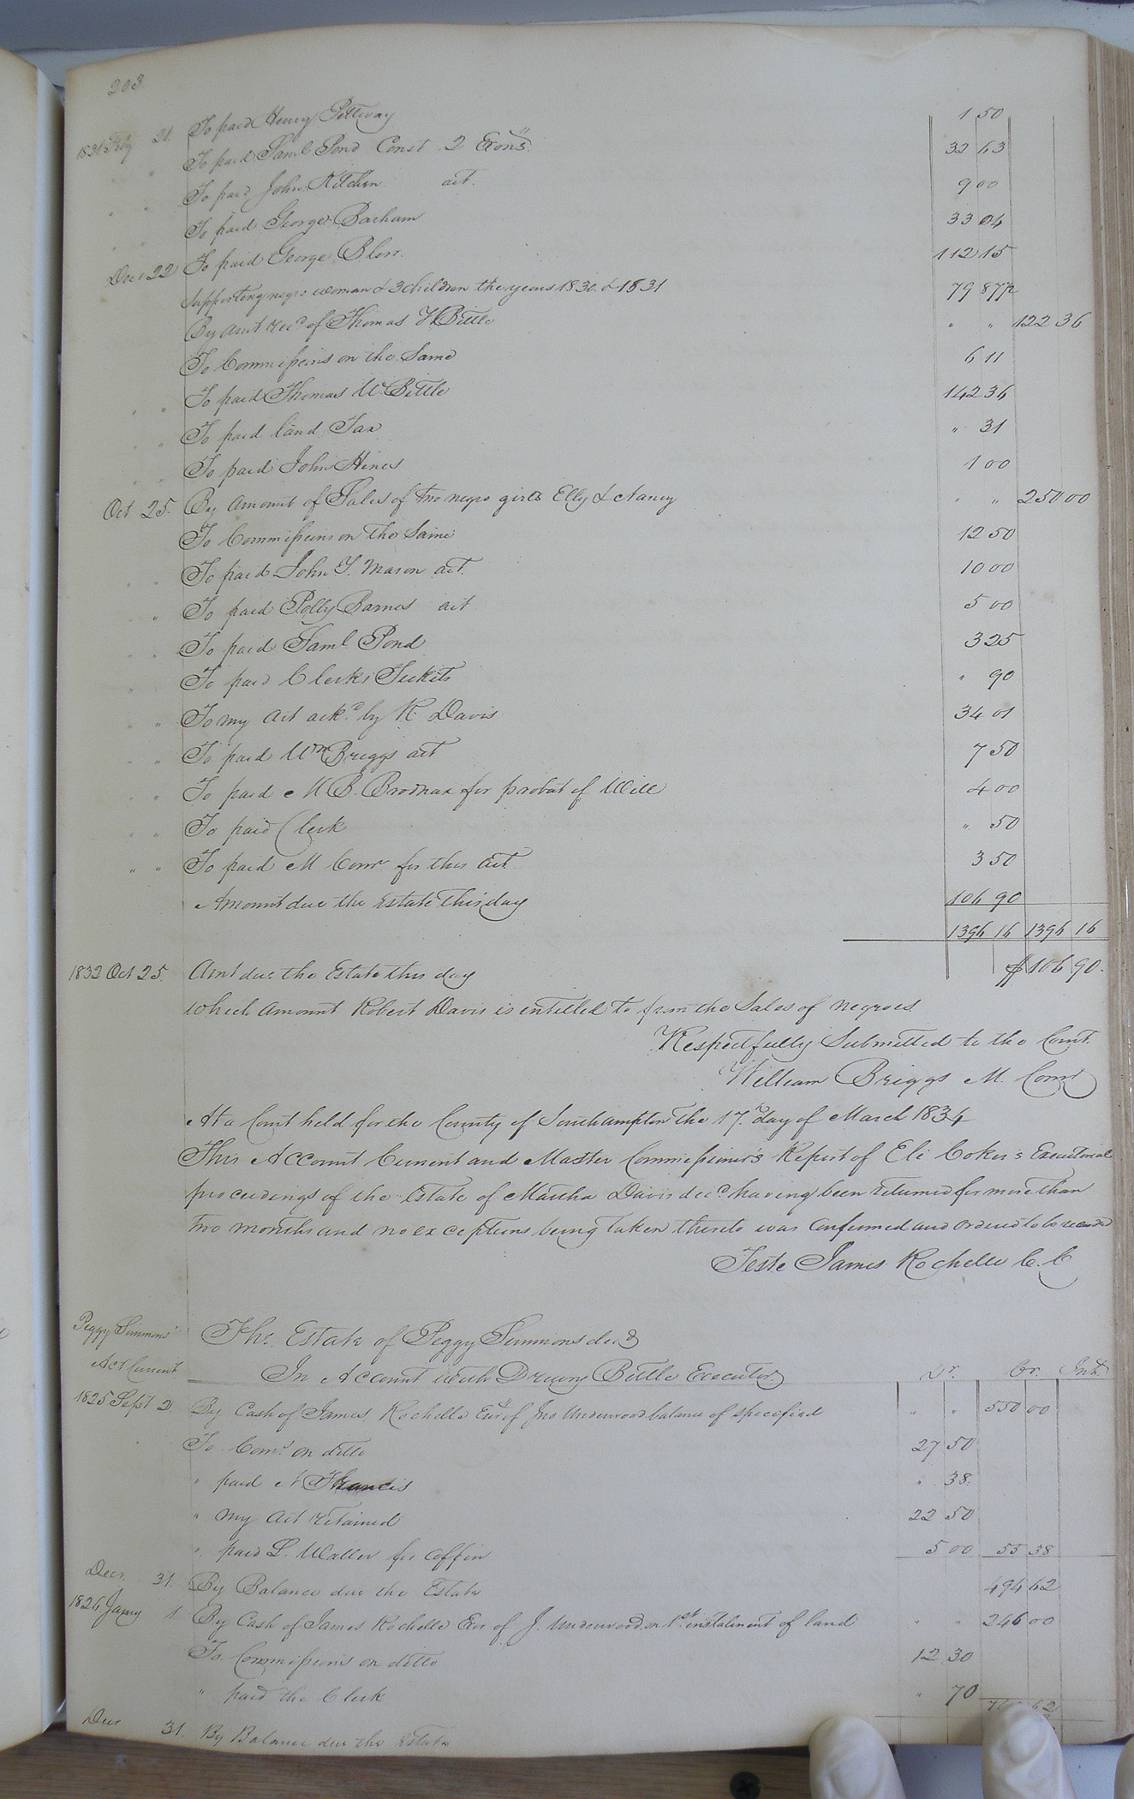 203
1831 Feby 21 To paid Henry Pettway 1 50
" To paid Saml Pond Const 2 Exons 32 63
" " To paid John Kitchen act. 9 00
" " To paid George Barham 33 04
Decr 22 To paid George Blow 112 15
Supporting negro woman & 3 children the years 1830 & 1831 79 87 1/2
By amt recd of Thomas W Bittle " " 122 36
To Commissions on the Same 6 11
" " To paid Thomas W Bittle 142 36
" " To paid land Tax " 31
" " To paid John Hines 1 00
Oct 25. By Amount of Sales of two negro girls Elly & Nancy " " 250 00
To Commissions on the Same 12 50
" " To paid John Y. Mason act. 10 00
" To paid Polly Barnes act 5 00
" " To paid Saml Pond 3 25
" " To paid Clerks Tickets " 90
" " To my act ackd by R. Davis 34 01
" " To paid Wm Briggs act 7 50
" " To paid M B. Brodnax for probat of Will 4 00
" " To paid Clerk " 50
" " To paid M Comr for this act 3 50
Amount due the Estate this day 106 90
1396 16 1396 16
1832 Oct 25. Amt due the Estate this day $106 90.
which amount Robert Davis is entitled to from the Sales of negroes
Respectfully Submitted to the Court.
William Briggs M. Comr
At a Court held for the County of Southampton the 17th day of March 1834
This Account Current and Master Commissioner's Report of Eli Coker's Executorial
proceedings of the Estate of Martha Davis decd having been returned for more than
two months and no exceptions being taken thereto was Confirmed and ordered to be recorded
Teste James Rochelle C. C
Peggy Simmons' The Estate of Peggy Simmons decd
Act Current In Account with Drewry Bittle Executor. Dr. Cr. Int.
1825 Sept 2 By Cash of James Rochelle Exr of Jno Underwood balance of specified " " 550 00
To Coms on ditto 27 50
" paid N Francis " 38.
" my act retained 22 50
" paid L. Waller for Coffin 5 00 55 38
Decr. 31. By Balance due the Estate 494 62
1826 Jany 1 By Cash of James Rochelle Exr of J. Underwood on 1st instalment of land " " 246 00
To Commissions on ditto 12 30
" paid the Clerk " 70
Decr 31. By Balance due the Estate